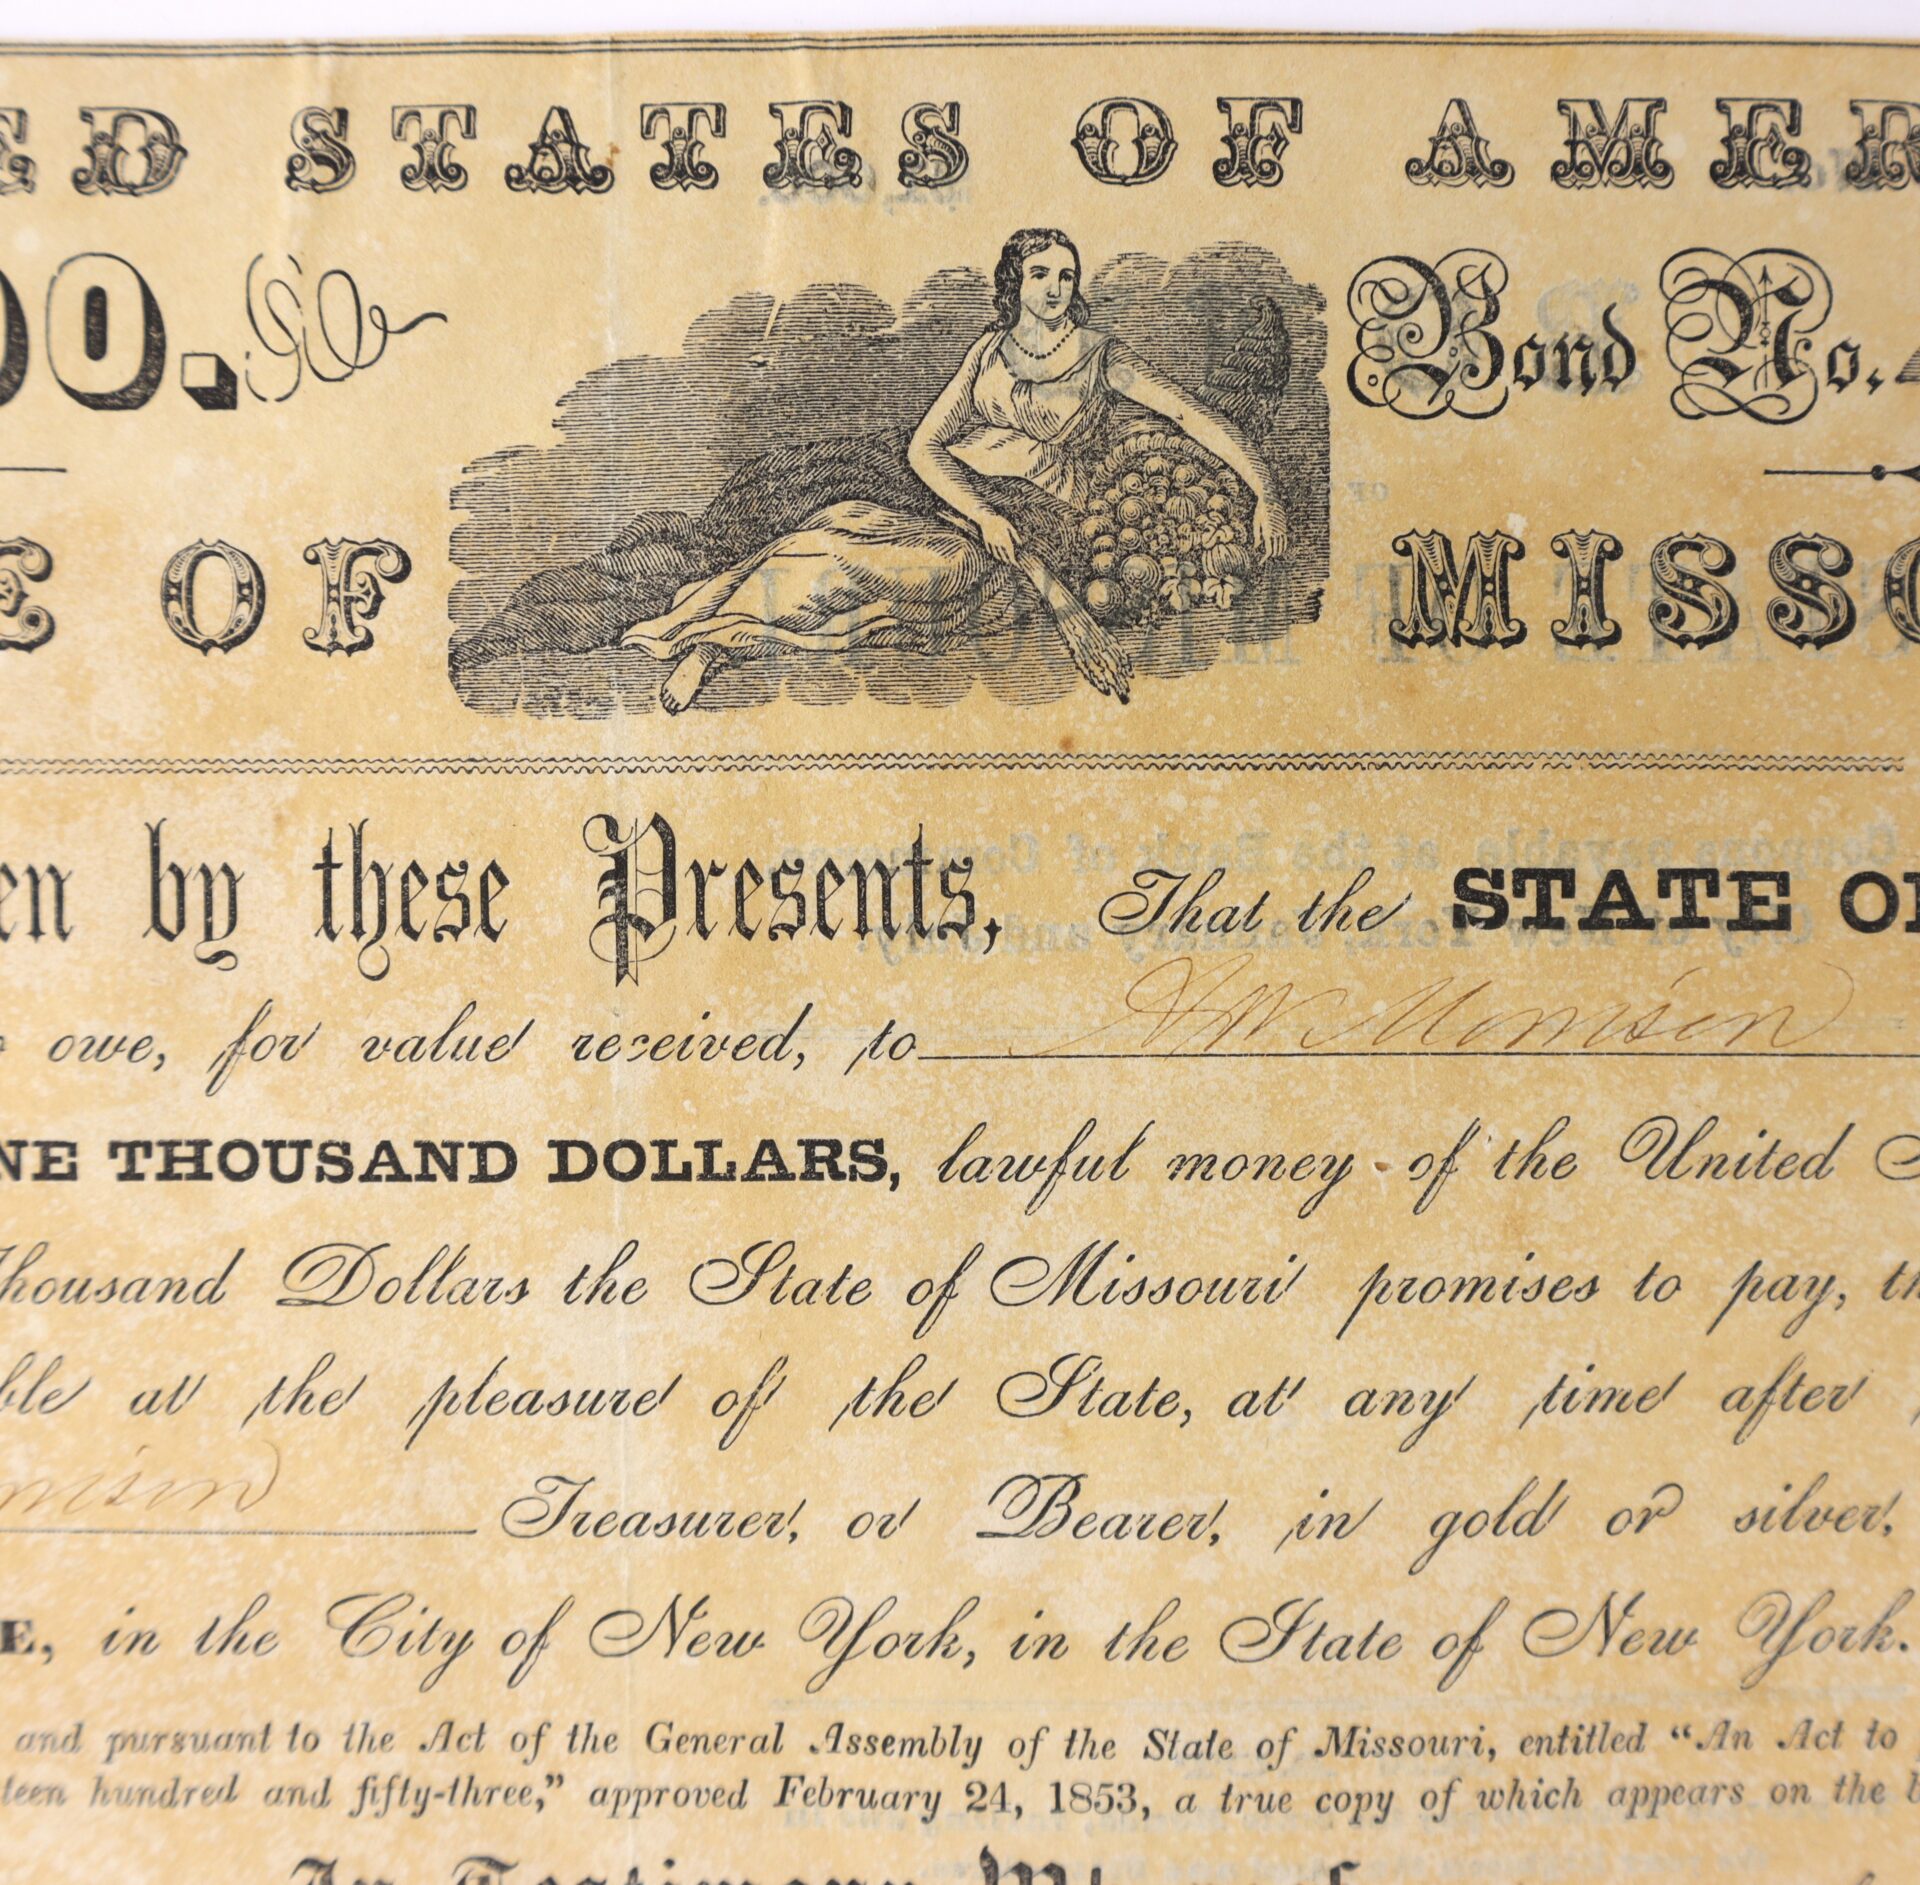 ED STATES OF AMER
00.
Bond No.
E OF MISSO
en by these Presents, That the STATE OF
owe, for value received, to A W Morrison
NE THOUSAND DOLLARS, lawful money of the United S
Thousand Dollars the State of Missouri promises to pay, th
ble at the pleasure of the State, at any time after
rrison Treasurer, or Bearer, in gold or silver,
E, in the City of New York, in the State of New York.
and pursuant to the Act of the General Assembly of the State of Missouri, entitled "An Act to
teen hundred and fifty-three," approved February 24, 1853, a true copy of which appears on the b
In Testimony Whereof